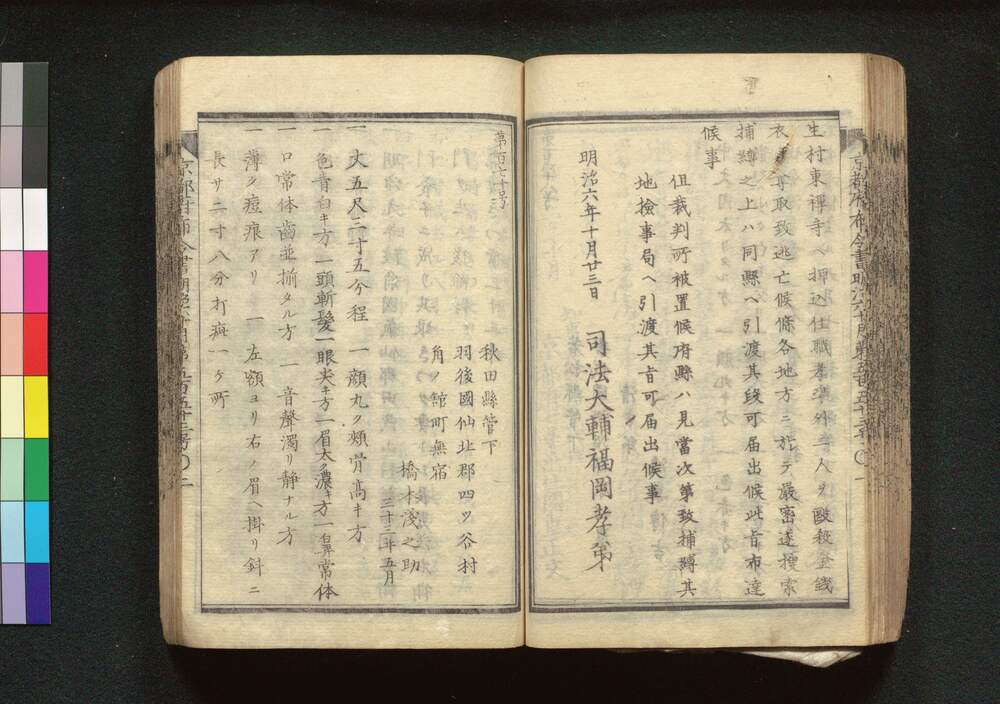 生村東禅寺ヘ押込住職孝淳外壱人ヲ殴殺金銭
衣類等取致逃亡候條各地方ニ於テ厳密遂捜索
捕縛之上ハ同縣ヘ引渡其段可届出候此旨布達
候事
但裁判所被置候府縣ハ見當次第致捕縛其
地検事局ヘ引渡其旨可届出候事
明治六年十月廿三日
司法大輔福岡孝弟
第百七十号
秋田縣管下
羽後國仙北郡四ツ谷村
角ノ舘町無宿
橋本浅之助
三十三年五月
一 丈五尺三寸五分程 一 顔丸ク頬骨高キ方
一 色青白キ方 一 頭斬髪 一 眼尖キ方 一 眉太ク濃キ方 一 鼻常体
一 口常体歯並揃タル方 一 音聲濁リ静ナル方
一 薄ク痘痕アリ 一 左額ヨリ右ノ眉ヘ掛リ斜ニ
長サ二寸八分打疵一ケ所